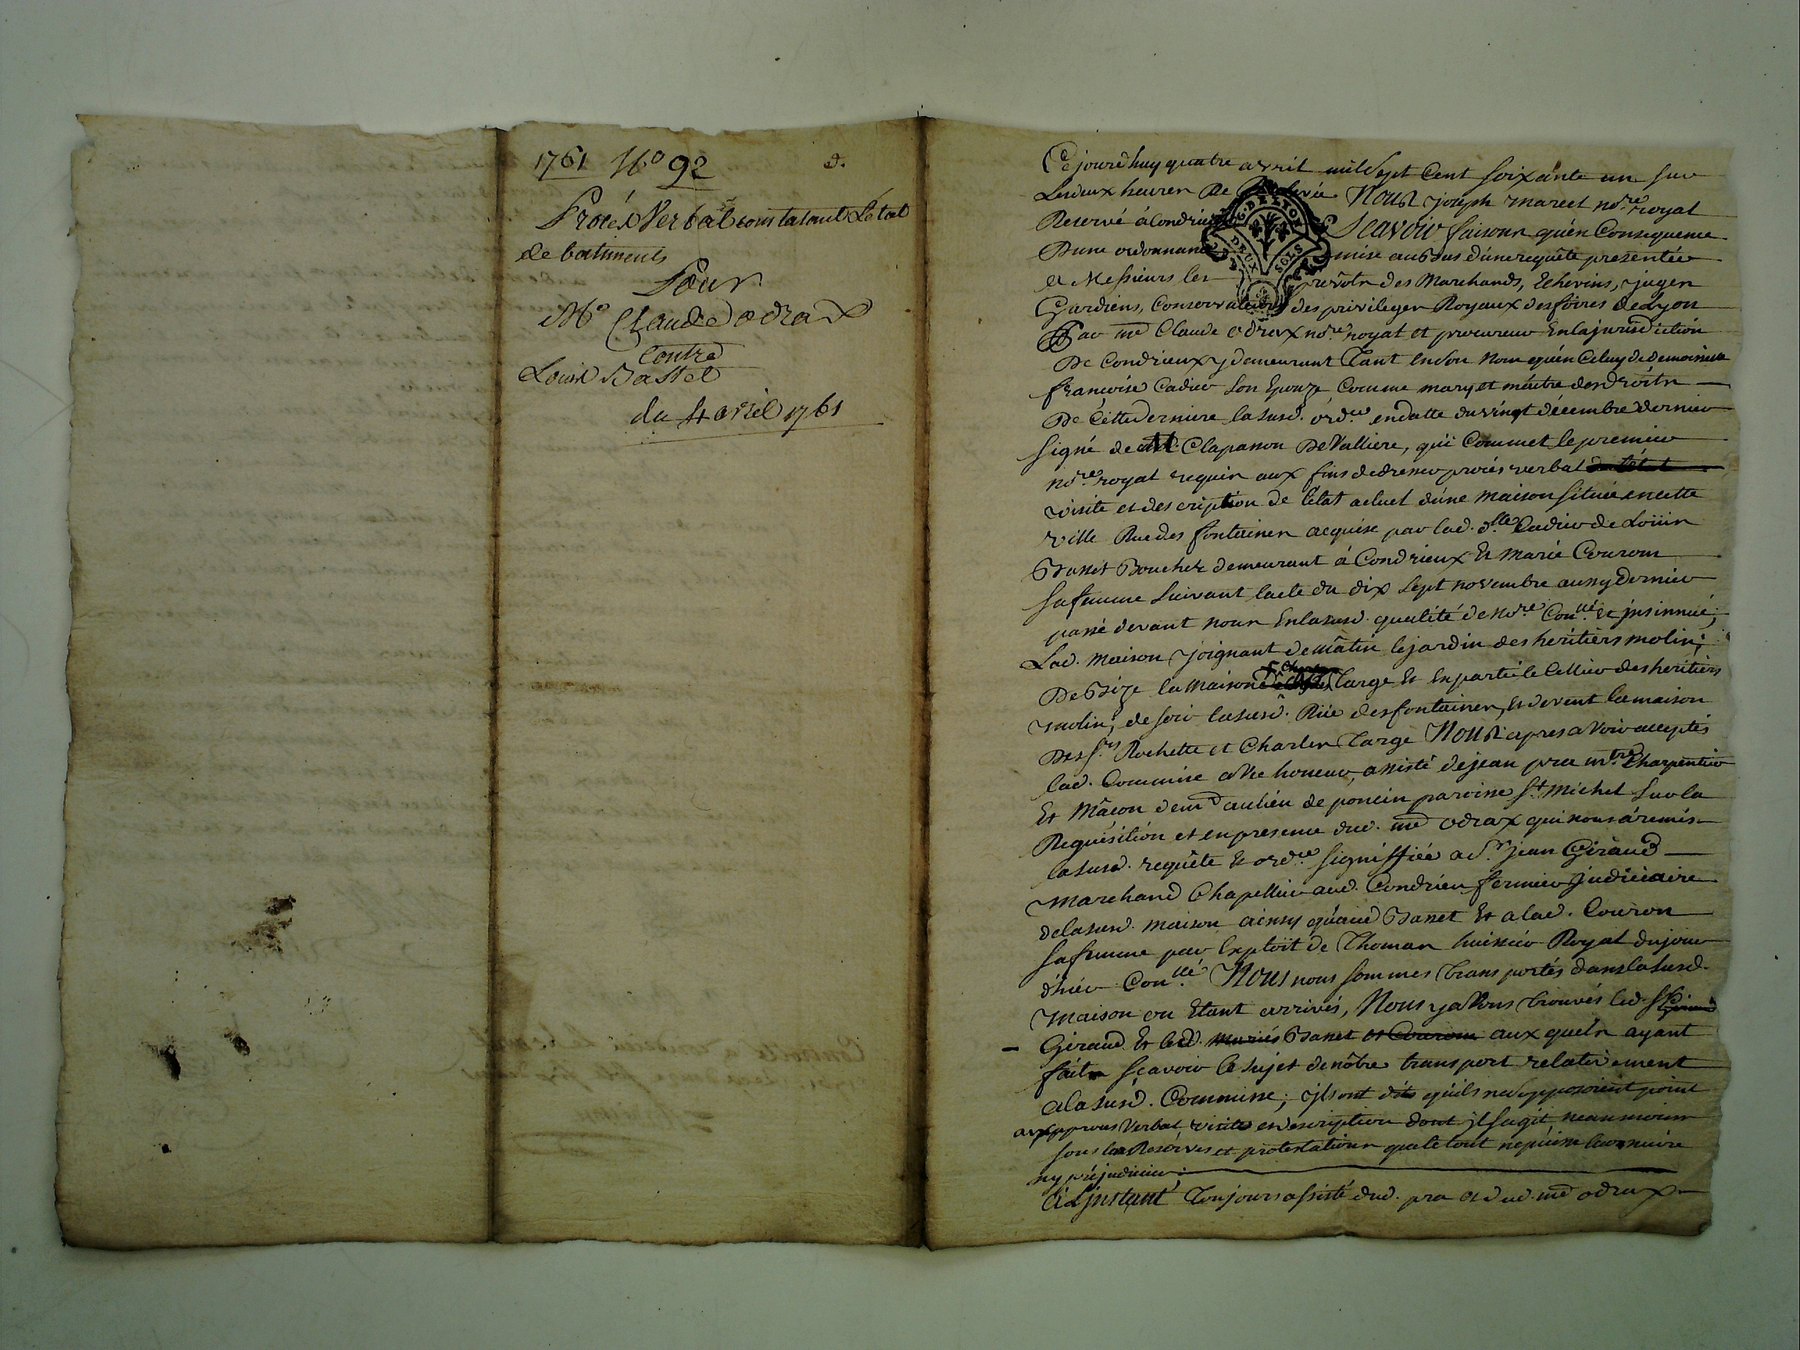 1761 No 92
Procès Verbal constatant L'etat
de batiments
Pour
Me Claude odrax
Contre
Louis Basset
du 4 avril 1761
Cejourd'huy quatre avril mil sept cent soixante un sur
Les deux heures De relevée Nous joseph marcet nore royal
Reservé à Condrieu Scavoir faisons qu'en Consequence
D'une ordonnance mise au bas d'une requête presentée
a Messieurs les prevôts des Marchands, Echevins, juges
Gardiens, Conservateurs des privileges Royaux des foires de Lyon
Par me Claude odrax nore royal et procureur En la jurisdiction
De Condrieux y demeurant Tant en son Nom qu'en Celuy de demoiselle
francoise Cadier son Epouze Comme mary et maitre des droits
De Cette derniere la susd. ordce en datte du vingt décembre dernier
Signé de Clapasson De Valliere, qui Commet le premier
nore royal requis aux fins de dresser procés verbal
visite et description de l'état actuel d'une maison située en cette
ville Rue des fontaines acquise par lad. dlle Cadier de Loüis
Basset Boucher demeurant à Condrieux Et marie Couron
sa femme suivant l'acte du dix sept novembre dernier
passé devant nous En la susd. qualité de nore Conllé Et jnsinnué;
Lad. maison joignant de mâtin le jardin des heritiers molin;
De Bize la maison Large Et En partie le Cellier des heritiers
molin; de soir la susd. Rüe des fontaines, Et de vent la maison
Des Srs Rochette et Charles Large Nous apres avoir acceptés
lad. Commise avec honeur, assisté de jean pra mtre Charpentier
Et Maçon demt au lieu de poncin paroisse St Michel Sur la
Requisition et en presence dud. me odrax qui nous a remis
la susd. requête Et ordce signiffiée a Sr jean Giraud
Marchand Chapellier aud. Condrieu fermier Judiciaire
de la susd. maison ainsy qu'aud Basset Et a lad. Couron
sa femme par Exploit de Thomas huissier Royal du jour
d'hier Conllé Nous nous sommes Transportés dans la susd.
maison ou Etant arrivés, Nous y avons trouvés led. Sr
Giraud Et led. Basset aux quels ayant
fait scavoir le sujet de nôtre transport relativement
a la susd. Commise; jls ont dit qu'ils ne s'opposoient point
aux proces Verbal visite et description dont jl s'agit neanmoins
sous les Reserves et protestations que le tout ne puisse leur nuire
ny préjudicier;
à L'jnstant Toujours assisté dud. pra et dud. me odrax
G. DE LYON
DEUX SOLS